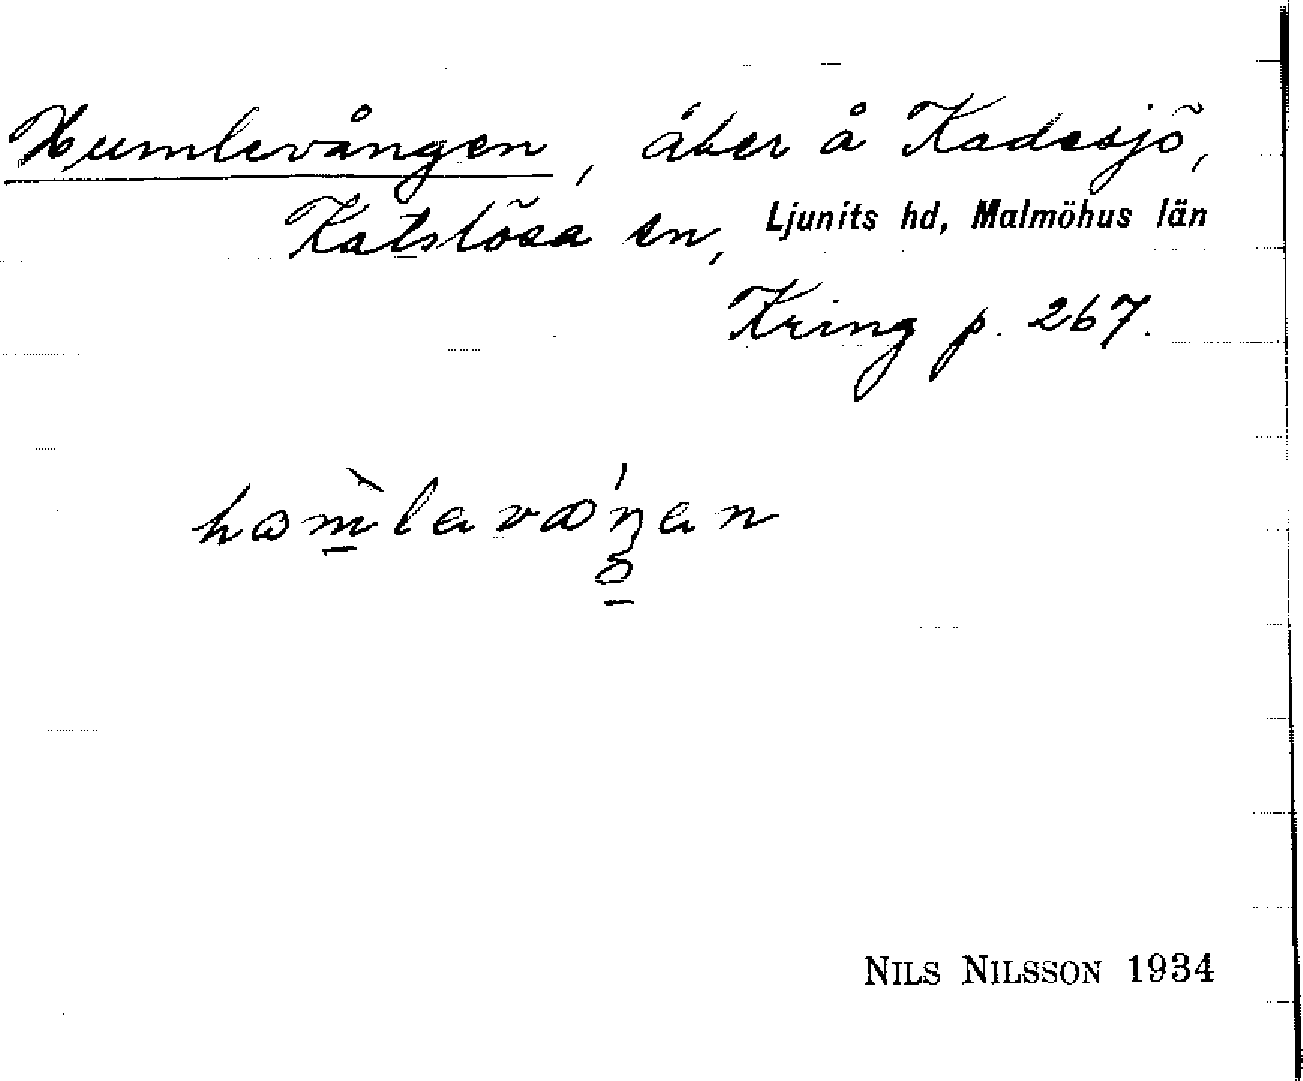 Humlevången, åker å Kadesjö,
Katslösa sn, Ljunits hd, Malmöhus län
Kring p. 267.
NILS NILSSON 1934